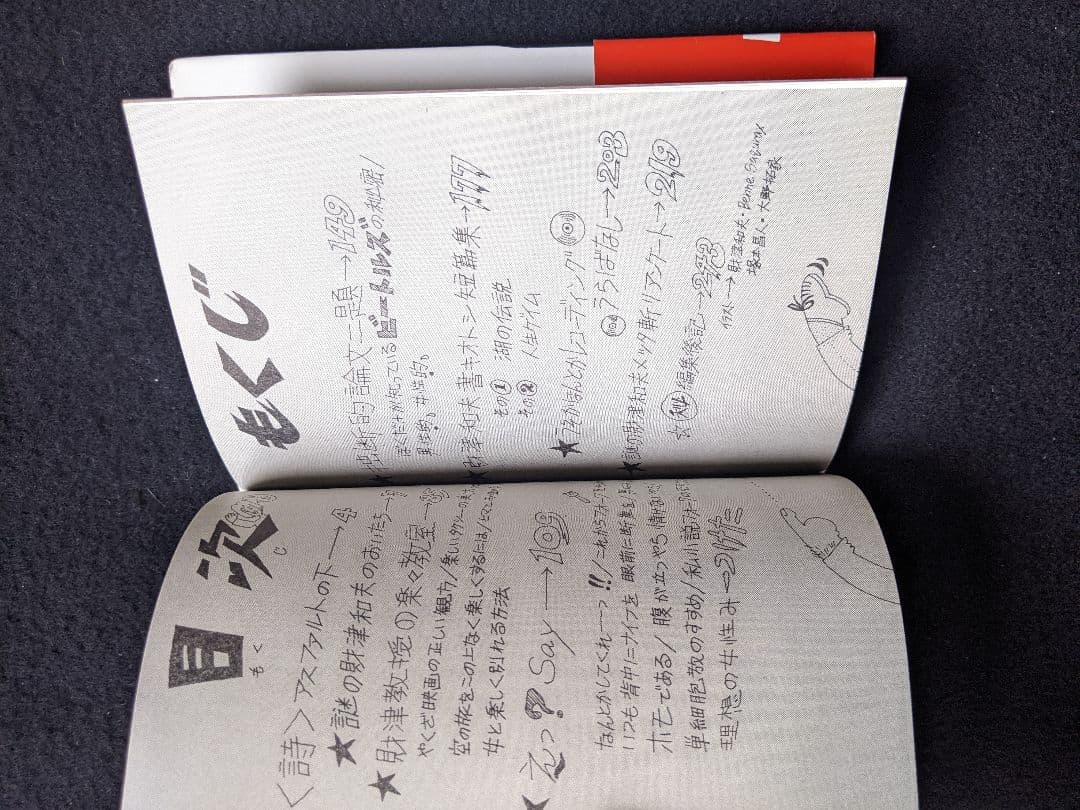 目次
もくじ
<詩>アスファルトの下→4
★謎の財津和夫のおいたち→
★財津教授の楽々教室→
やくざ映画の正しい観方/楽しいタクシーの
空の旅をこの上なく楽しくするには/
女と楽しく別れる方法
★えっ?Say→109
なんとかしてくれーっ!!/これがらフォーク
いつも背中にナイフを 眼前に断崖を
ホモである/腹が立つやら情けないやら
単細胞教のすすめ/私小説フォーク
理想の女性み→
もくじ
★独断的論文二題→149
ぼくだけが知っているビートルズの秘密/
男性的。女性的。
★財津和夫書キオトシ短篇集→177
その1 湖の伝説
その2 人生ゲイム
★うそかほんとかレコーディング
うらばなし→203
★謎の財津和夫メッタ斬リアンケート→219
☆秘編集後記→223
イラスト→財津和夫・
塚本昌人・大野拓哉